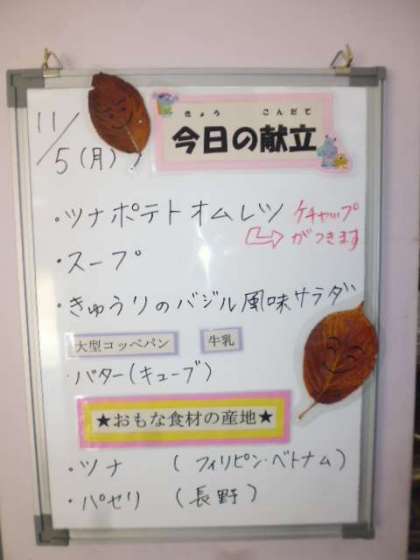 11/5(月)
きょう こんだて
今日の献立
・ツナポテトオムレツ
ケチャップ
がつきます
・スープ
・きゅうりのバジル風味サラダ
大型コッペパン 牛乳
・バター(キューブ)
★おもな食材の産地★
・ツナ (フィリピン・ベトナム)
・パセリ (長野)